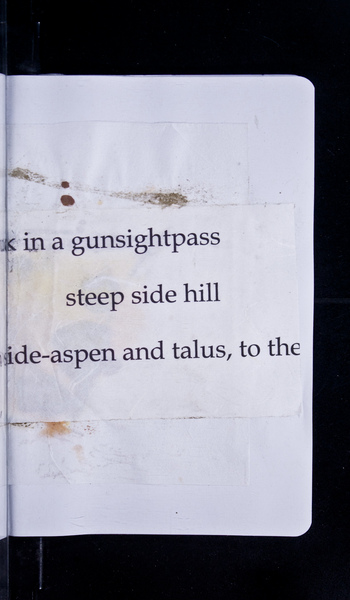 k in a gunsightpass
steep side hill
side-aspen and talus, to the